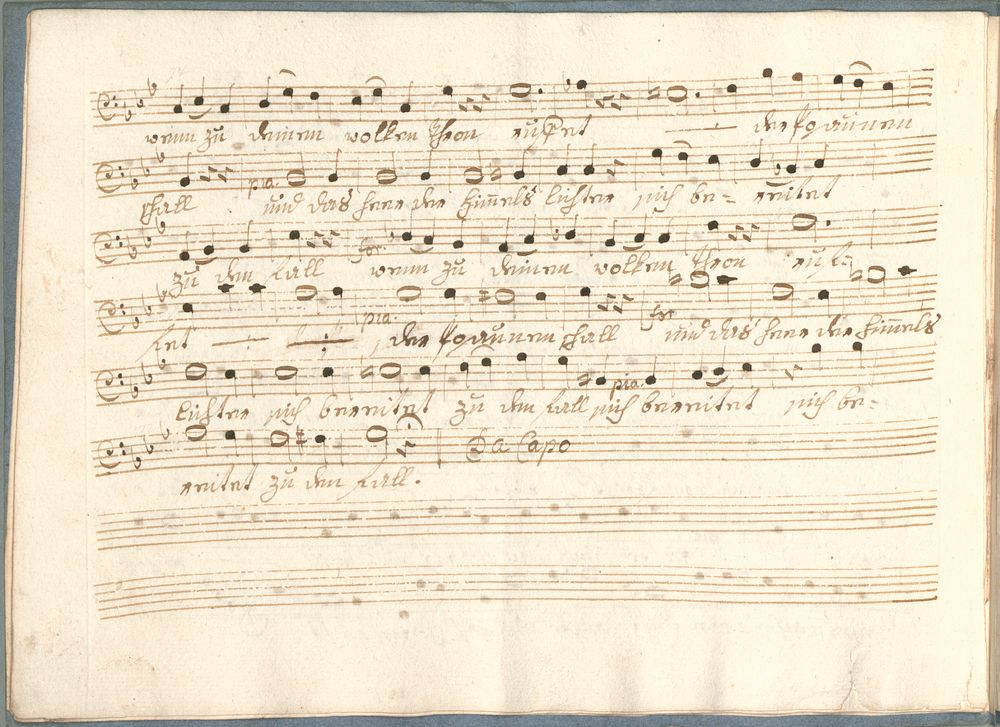 wenn zu deinem wolken Thron ruffet der Posaunen
schall pia. und das heer der himels lichter sich be= reitet
zu dem fall for wenn zu deinem wolken Thron ruf=
fet pia. der Posaunen schall for und das heer der himels
lichter sich bereitet zu dem fall pia. sich bereitet sich be=
reitet zu dem fall. Da Capo